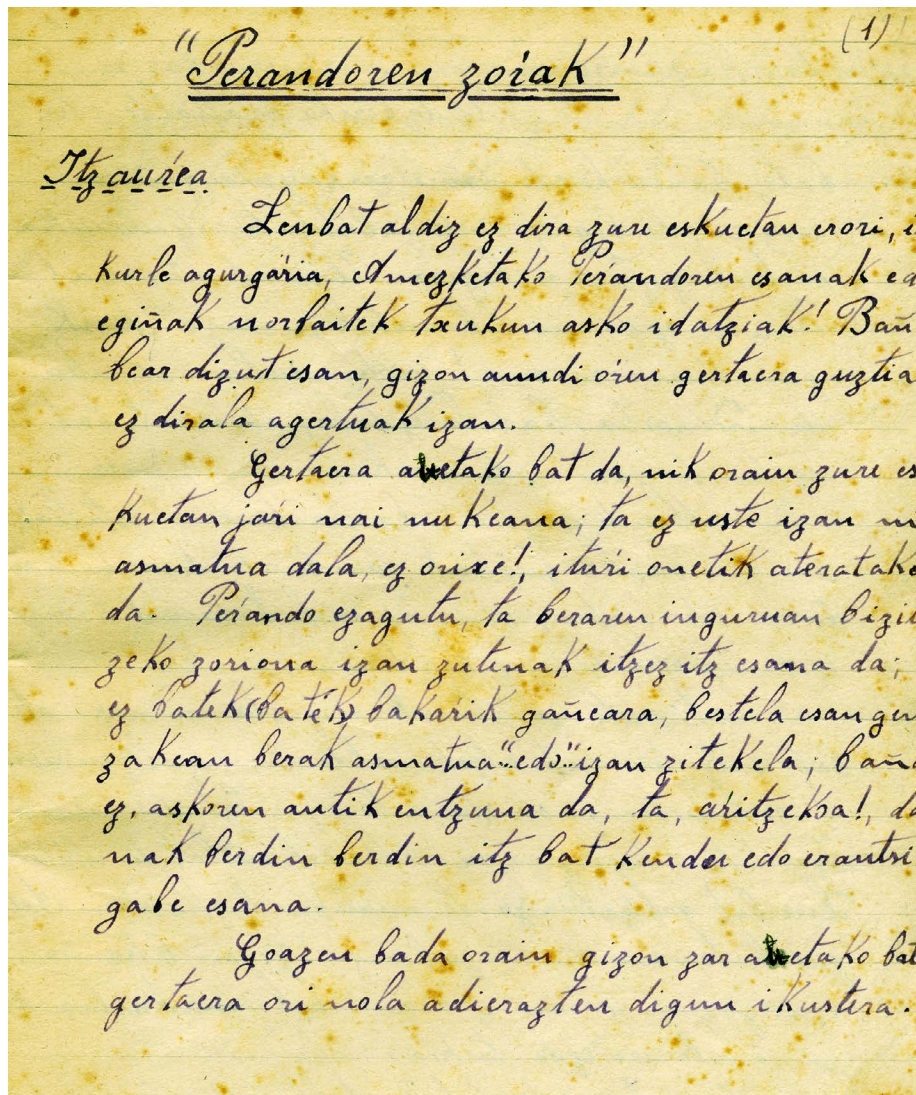 (1)
"Peŕandoren zoŕak"
Itz auŕea
Zenbat aldiz ez dira zure eskuetan erori, i
kurle agurgaŕia, Amezketako Peŕandoren esanak ed
egiñak norbaitek txukun asko idatziak! Bañ
bear dizut esan, gizon aundi oŕen gertaera guztia
ez dirala agertuak izan.
Gertaera auetako bat da, nik orain zure es
kuetan jaŕi nai nukeana; ta ez uste izan n
asmatua dala, ez orixe!, ituŕi onetik ateratak
da. Peŕando ezagutu, ta beraren inguruan bizi
zeko zoriona izan zutenak itzez itz esana da;
ez batek (batek) bakaŕik gañeara, bestela esan gen
zakean berak asmatua "edo" izan zitekela; bañ
ez, askoren autik entzuna da, ta, aŕitzekoa!, da
nak berdin berdin itz bat kendu edo erantsi
gabe esana.
Goazen bada orain gizon zar auetako bat
gertaera ori nola adierazten digun ikustera.